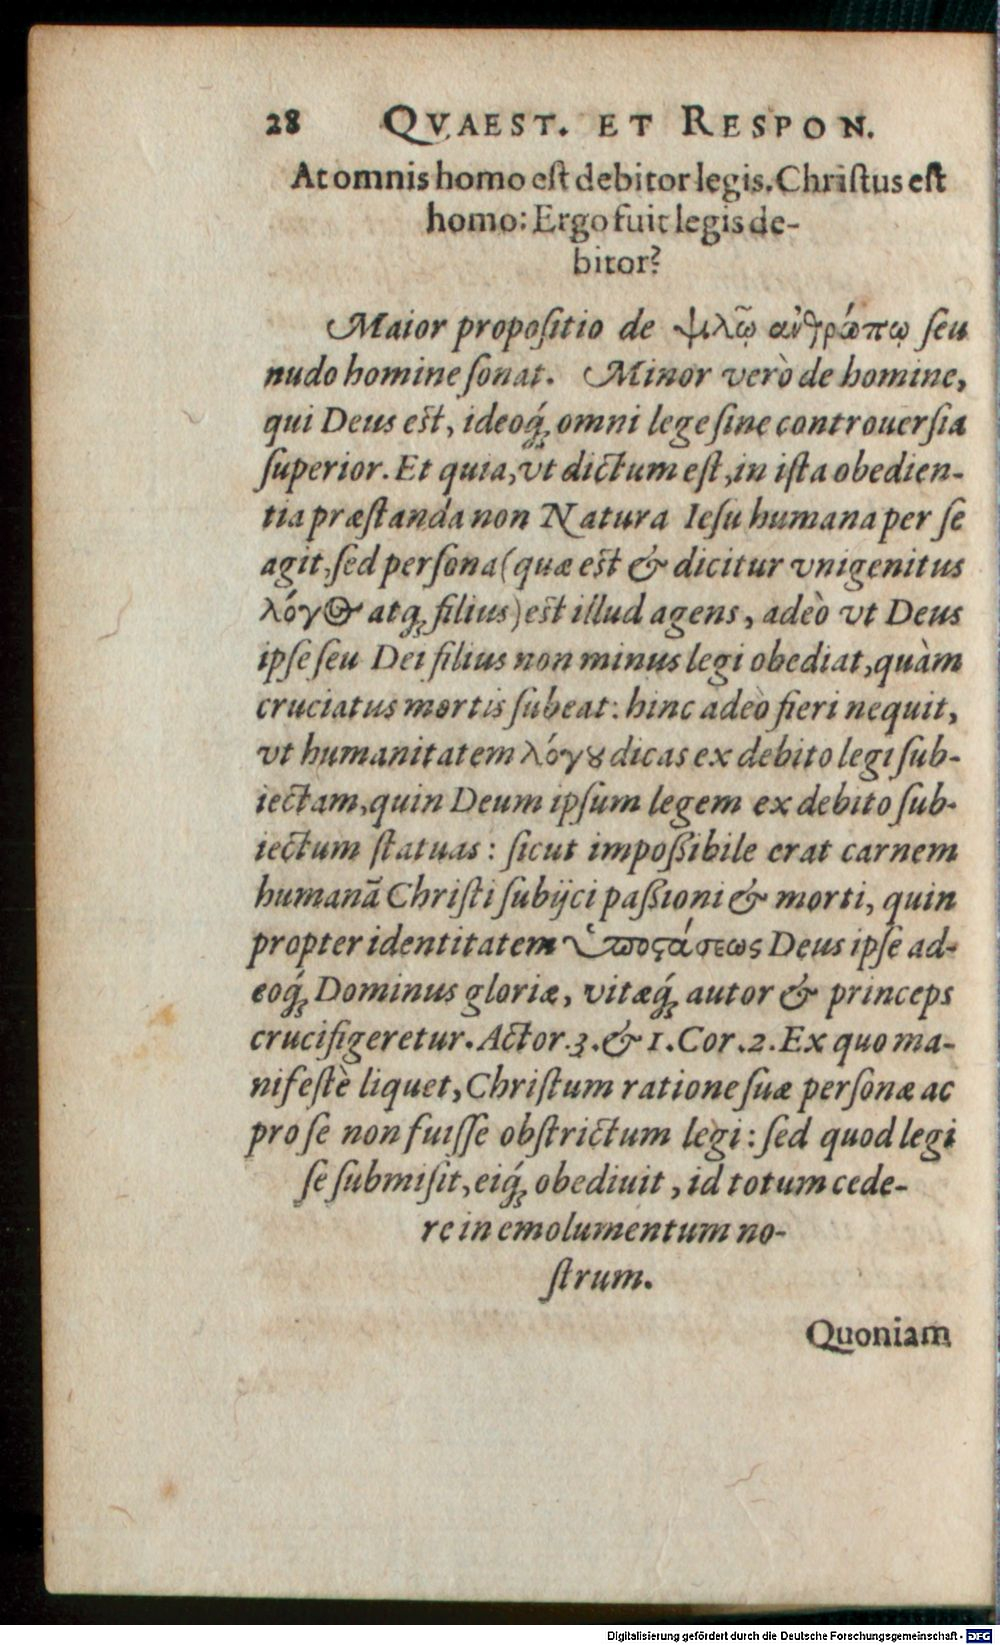 28 QVAEST. ET RESPON.
At omnis homo est debitor legis. Christus est
homo: Ergo fuit legis de-
bitor?
Maior propositio de ψιλῷ ανθρώπῳ seu
nudo homine sonat. Minor verò de homine,
qui Deus est, ideoq́; omni lege sine controuersia
superior. Et quia, vt dictum est, in ista obedien-
tia præstanda non Natura Iesu humana per se
agit, sed persona (quæ est & dicitur vnigenitus
λόγος atq; filius) est illud agens, adeò vt Deus
ipse seu Dei filius non minus legi obediat, quàm
cruciatus mortis subeat: hinc adeò fieri nequit,
vt humanitatem λόγȣ dicas ex debito legi sub-
iectam, quin Deum ipsum legem ex debito sub-
iectum statuas: sicut impossibile erat carnem
humanã Christi subijci passioni & morti, quin
propter identitatem ὑποςάσεως Deus ipse ad-
eoq́; Dominus gloriæ, vitæq́; autor & princeps
crucifigeretur. Actor. 3. & 1. Cor. 2. Ex quo ma-
nifestè liquet, Christum ratione suæ personæ ac
pro se non fuisse obstrictum legi: sed quod legi
se submisit, eiq́; obediuit, id totum cede-
re in emolumentum no-
strum.
Quoniam
Digitalisierung gefördert durch die Deutsche Forschungsgemeinschaft - DFG